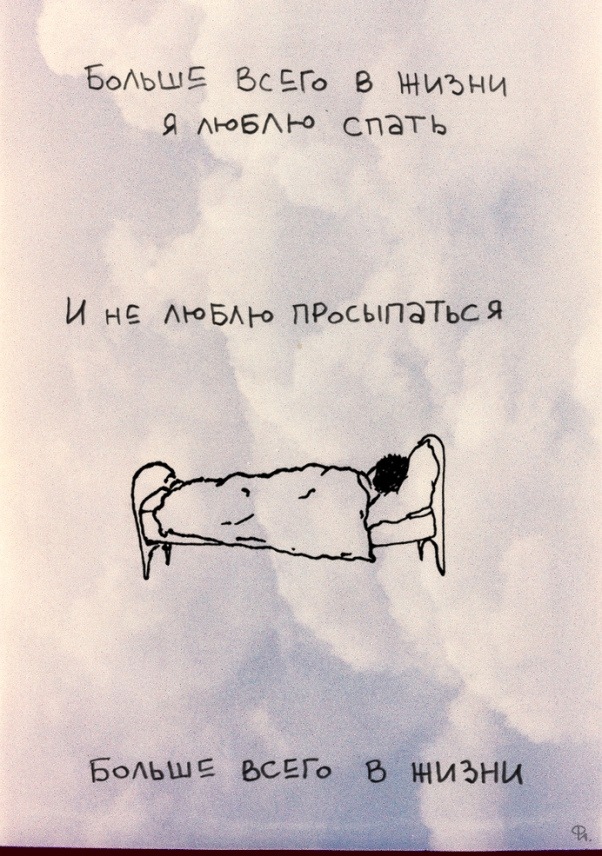 Больше всего в жизни
я люблю спать
И не люблю просыпаться
Больше всего в жизни